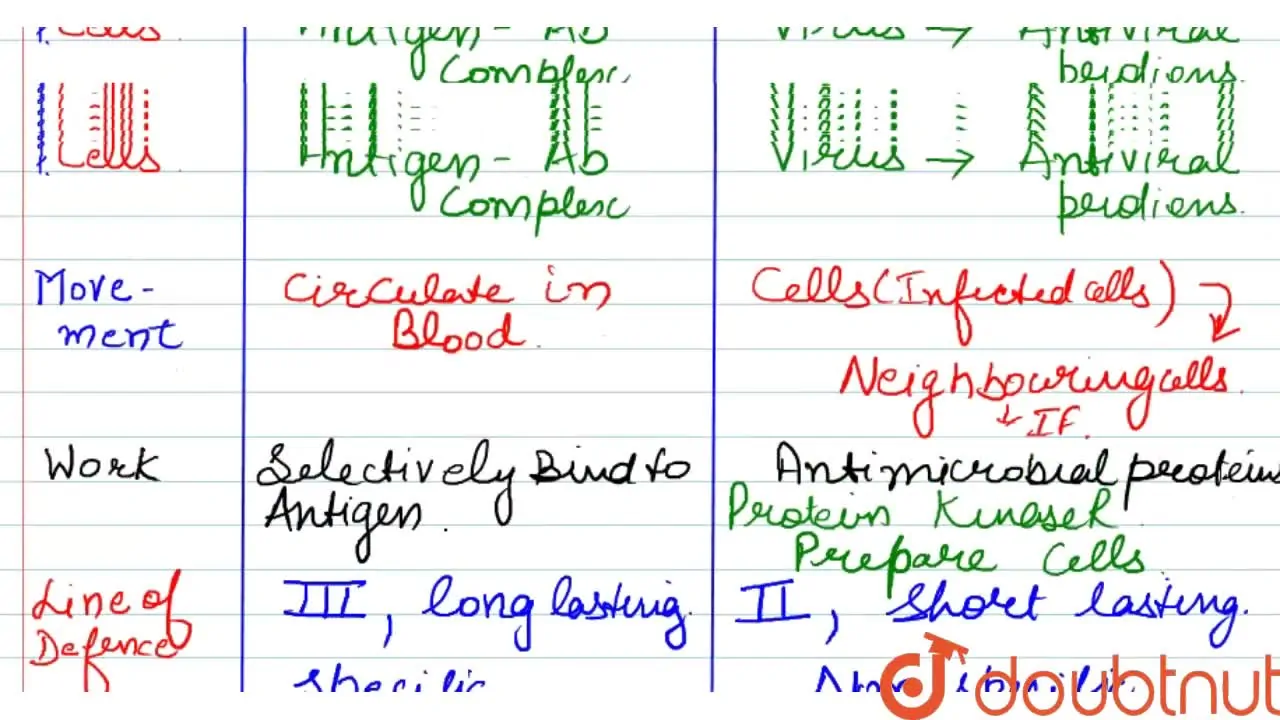 Cells Antigen - Ab Virus → Antiviral
Complex perdiens.
Cells Antigen - Ab Virus → Antiviral
Complex perdiens.
Move- Circulate in Cells (Infected cells)
ment Blood.
Neighbouring cells.
↓ IF.
Work Selectively Bind to Antimicrobial proteins
Antigen. Protein Kinase R
Prepare Cells
Line of III, long lasting. II, Short lasting.
Defence
Specific Non specific
doubtnut